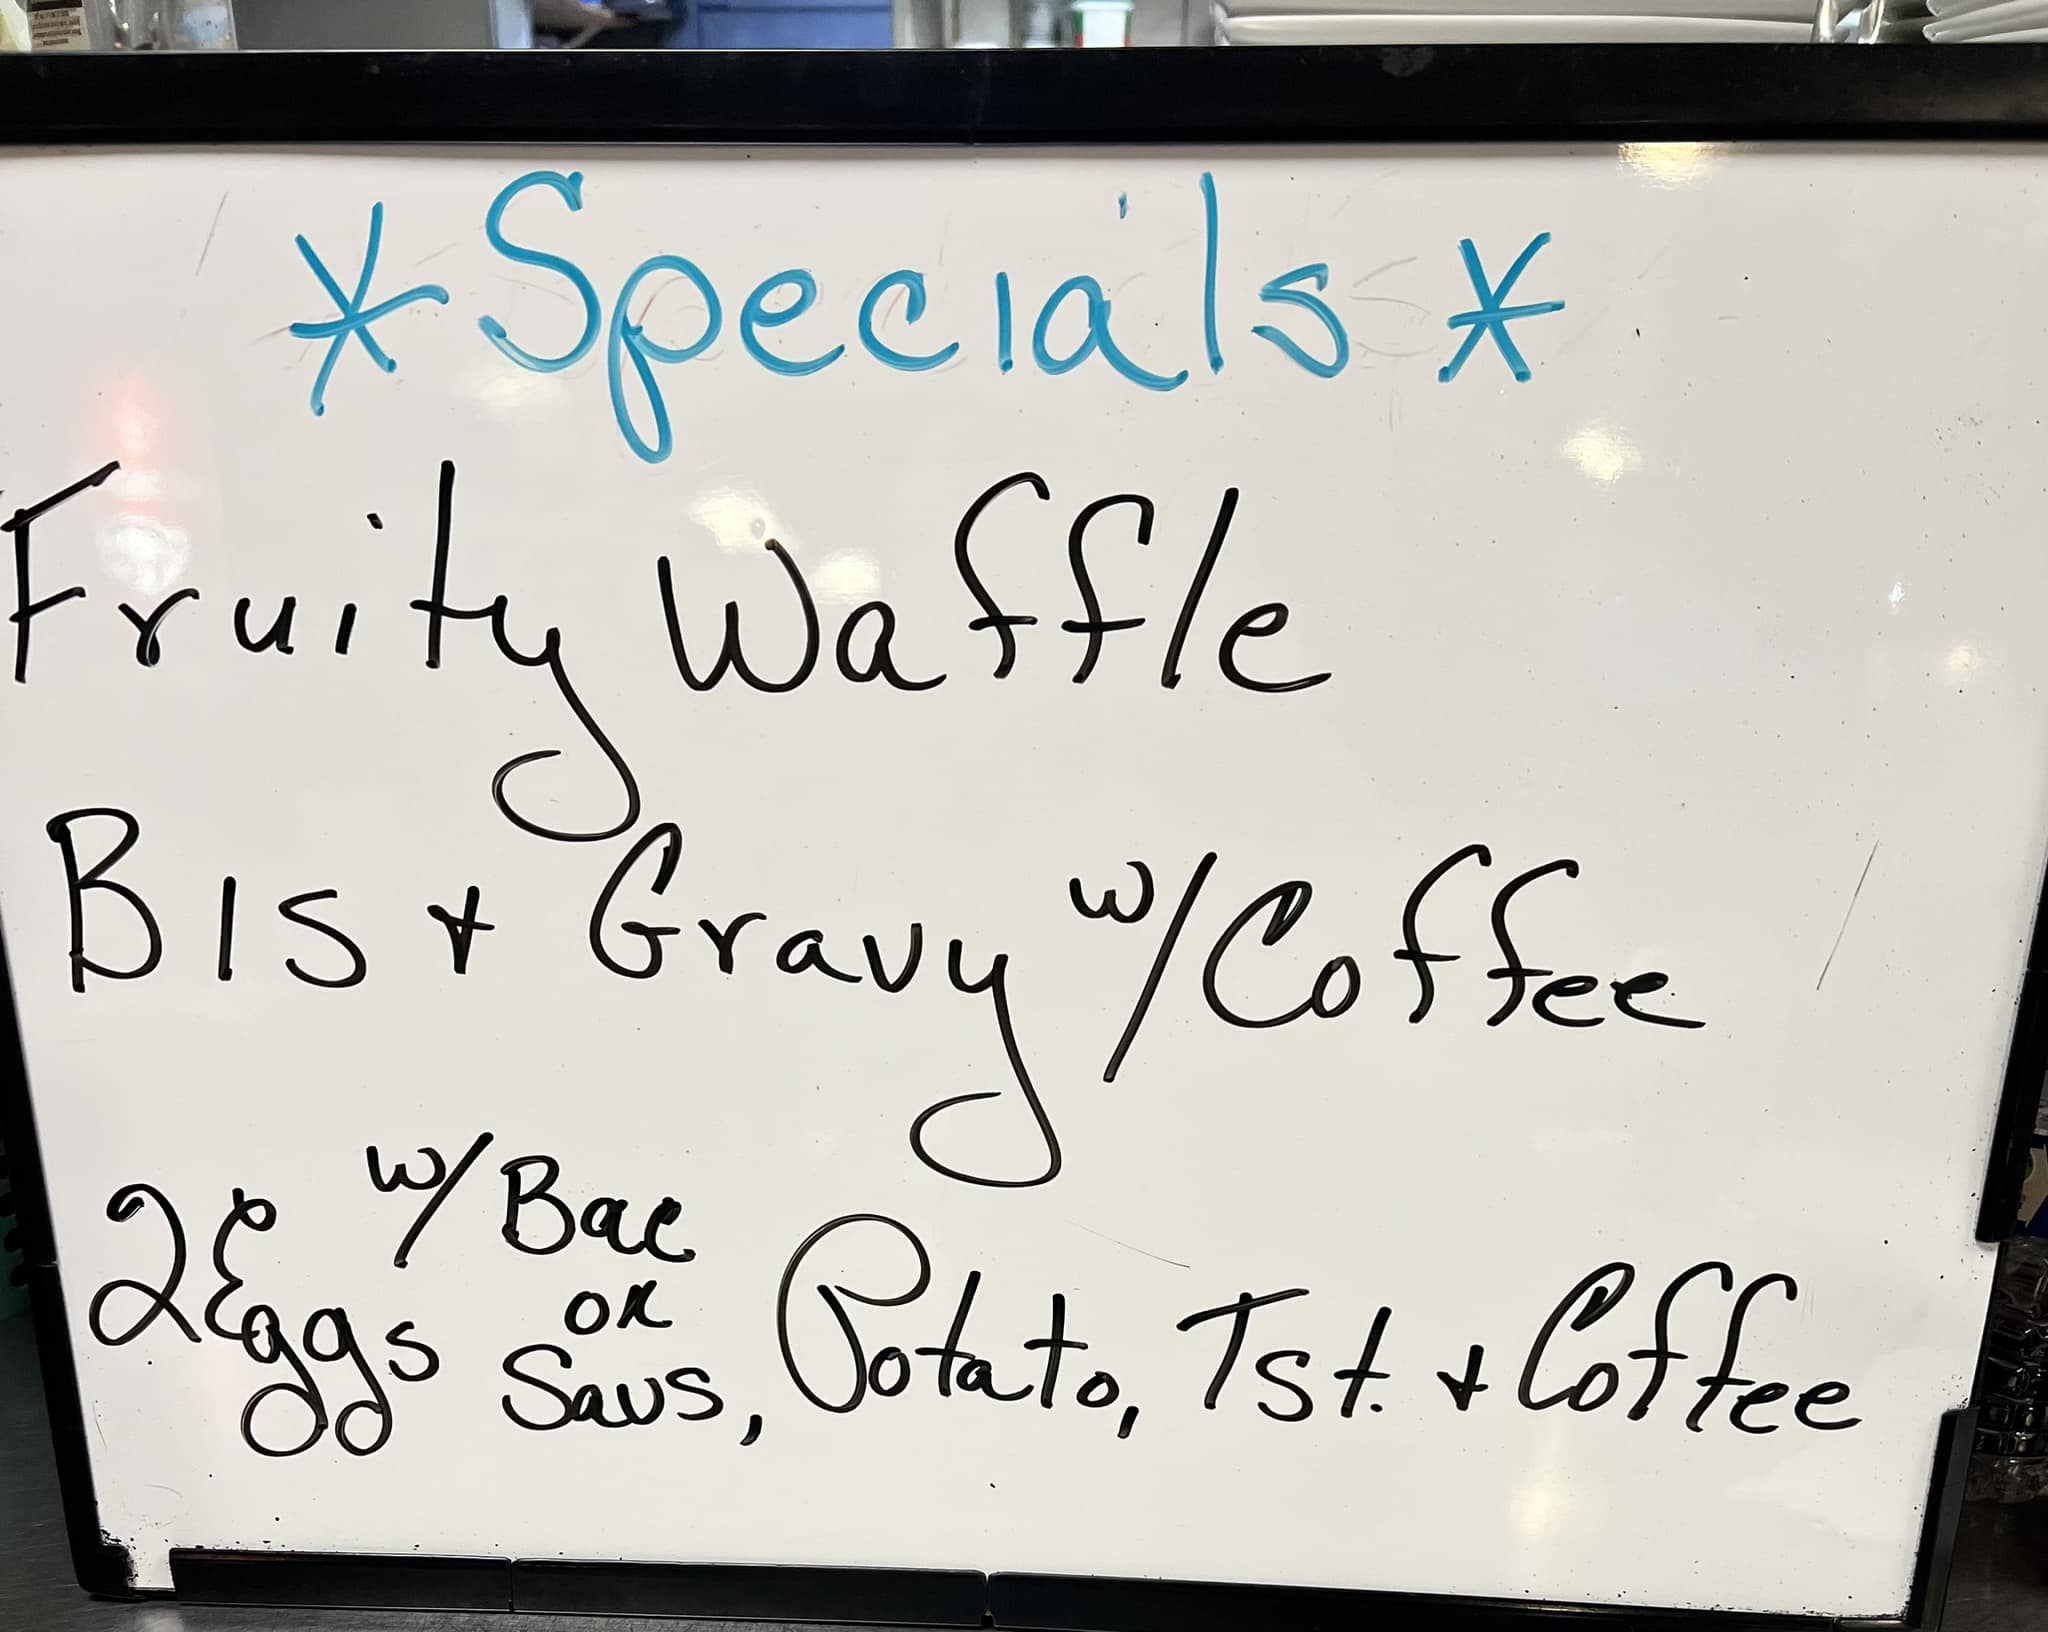 *Specials*
Fruity Waffle
Bis + Gravy w/ Coffee
2 Eggs w/ Bac or Saus, Potato, Tst. + Coffee